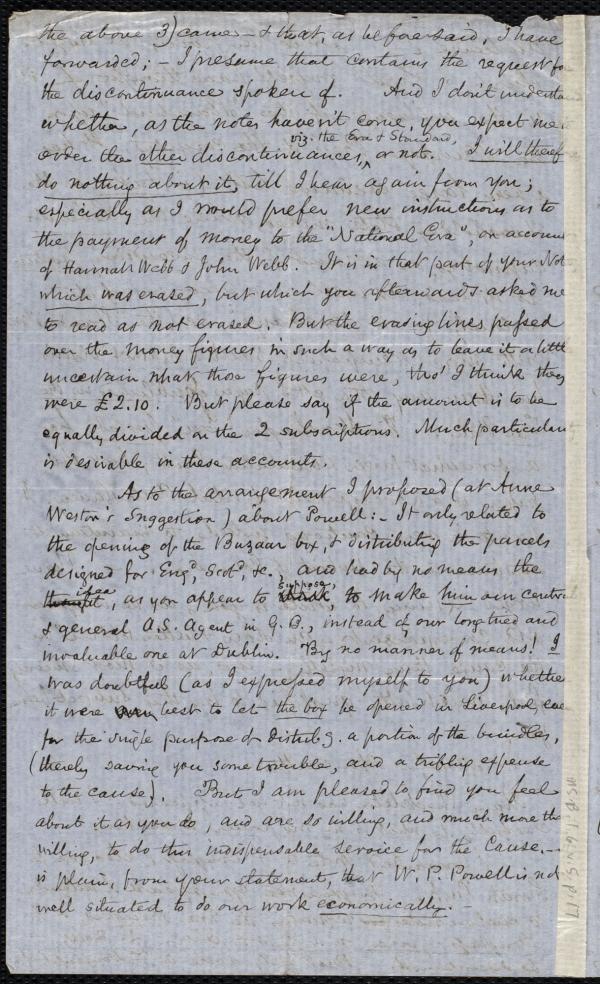 the above 3) came - & that, as beforesaid, I have
forwarded; - I presume that contains the request for
the discontinuance spoken of. And I don't understand
whether, as the notes haven't come, you expect me to
viz. the Era & Standard,
order the other discontinuances, or not. I will theref
do nothing about it, till I hear again from you;
especially as I would prefer new instructions as to
the payment of money to the "National Era", on account
of Hannah Webb & John Webb. It is in that part of your Note
which was erased, but which you afterwards asked me
to read as not erased. But the erasing lines passed
over the money figures in such a way as to leave it a little
uncertain what those figures were, tho' I think they
were £2.10. But please say if the amount is to be
equally divided on the 2 subscriptions. Much particular
is desirable in these accounts.
As to the arrangement I proposed (at Anne
Weston's suggestion) about Powell: - It only related to
the opening of the Bazaar box, & distributing the parcels
designed for Engd, Scotd, &c., and had by no means the
idea suppose,
thought, as you appear to think, to make him our central
& general A.S. Agent in G.B., instead of our long tried and
invaluable one at Dublin. By no manner of means! I
was doubtful (as I expressed myself to you) whether
it were best to let the box be opened in Liverpool, even
for the single purpose of distributg. a portion of the bundles,
(thereby saving you some trouble, and a trifling expense
to the cause). But I am pleased to find you feel
about it as you do, and are so willing, and much more than
willing, to do this indispensable service for the Cause. -
is plain, from your statement, that W. P. Powell is not
well situated to do our work economically. -